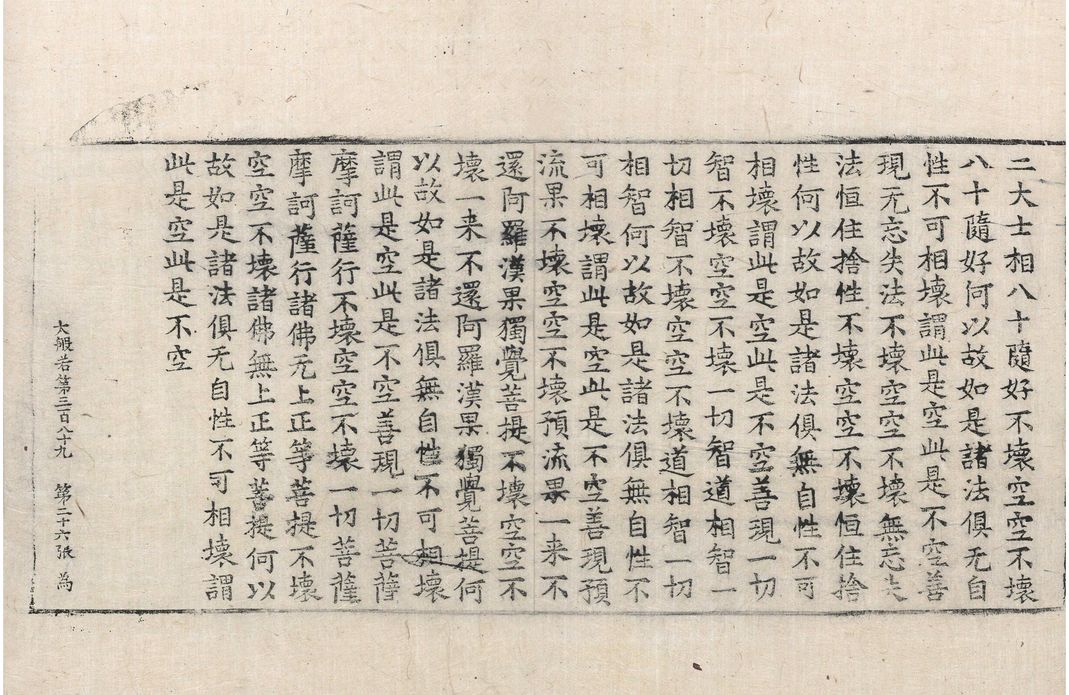 二大士相八十隨好不壞空空不壞
八十隨好何以故如是諸法俱无自
性不可相壞謂此是空此是不空善
現无忘失法不壞空空不壞無忘失
法恒住捨性不壞空空不壞恒住捨
性何以故如是諸法俱無自性不可
相壞謂此是空此是不空善現一切
智不壞空空不壞一切智道相智一
切相智不壞空空不壞道相智一切
相智何以故如是諸法俱無自性不
可相壞謂此是空此是不空善現預
流果不壞空空不壞預流果一来不
還阿羅漢果獨覺菩提不壞空空不
壞一来不還阿羅漢果獨覺菩提何
以故如是諸法俱無自性不可相壞
謂此是空此是不空善現一切菩薩
摩訶薩行不壞空空不壞一切菩薩
摩訶薩行諸佛无上正等菩提不壞
空空不壞諸佛無上正等菩提何以
故如是諸法俱无自性不可相壞謂
此是空此是不空
大般若第三百八十九 第二十六張 為